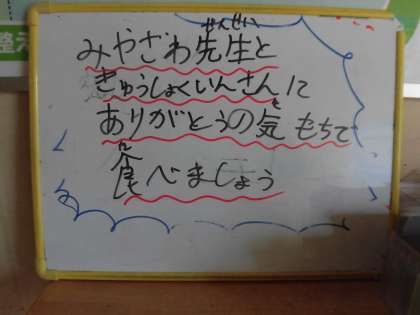 みやざわ先生と
きゅうしょくいんさんに
ありがとうの気もちで
食べましょう